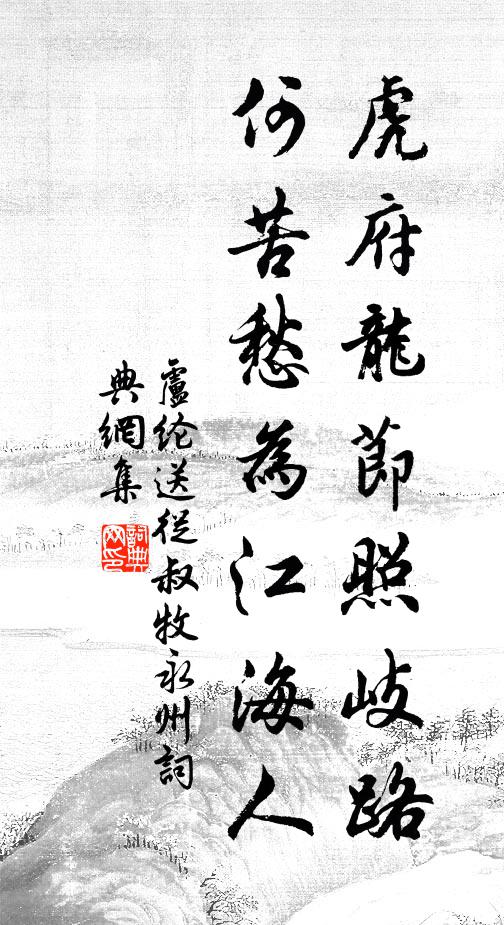 虎府龍節照岐路
何苦愁為江海人
盧纶送從叔牧永州詞
典網集
詞典
网印